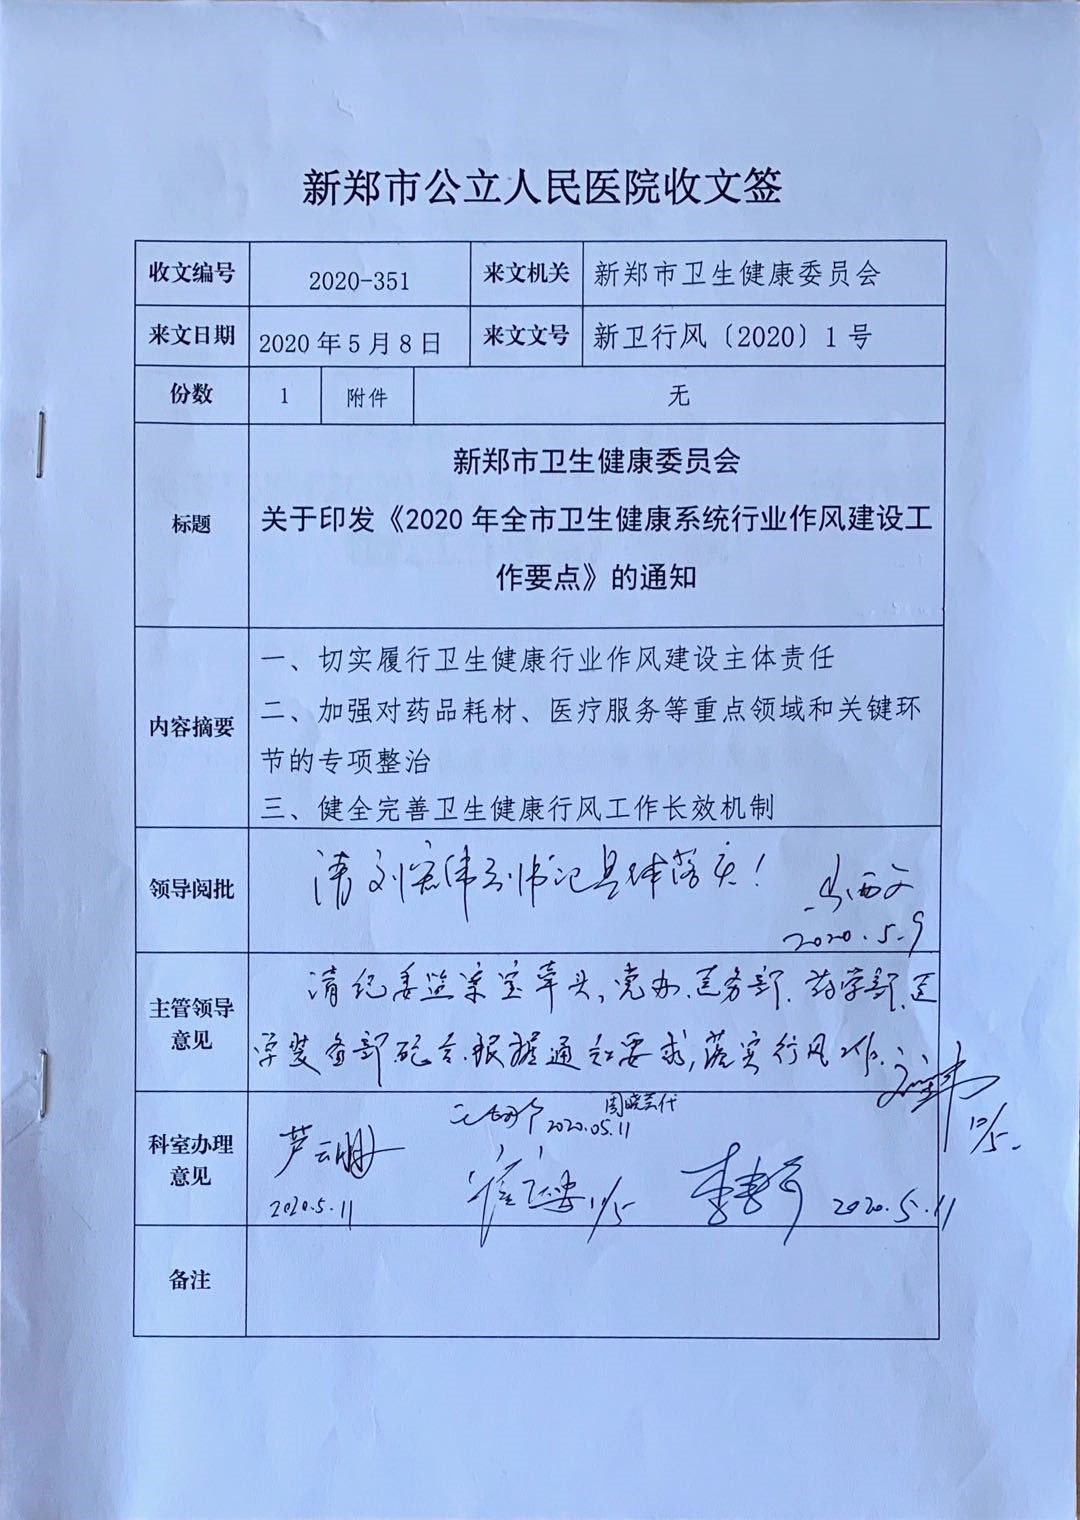 新郑市公立人民医院收文签
收文编号 2020-351 来文机关 新郑市卫生健康委员会
来文日期 2020年5月8日 来文文号 新卫行风〔2020〕1号
份数 1 附件 无
标题
新郑市卫生健康委员会
关于印发《2020年全市卫生健康系统行业作风建设工
作要点》的通知
内容摘要
一、切实履行卫生健康行业作风建设主体责任
二、加强对药品耗材、医疗服务等重点领域和关键环
节的专项整治
三、健全完善卫生健康行风工作长效机制
领导阅批
请刘宏伟副书记具体落实!
2020.5.9
主管领导
意见
请纪委监察室牵头,党办、医务部、药学部、医
学装备部配合,根据通知要求,落实行风工作.
10/5.
科室办理
意见
周晓芸代
2020.05.11
芦云鹏
2020.5.11
11/5
2020.5.11
备注